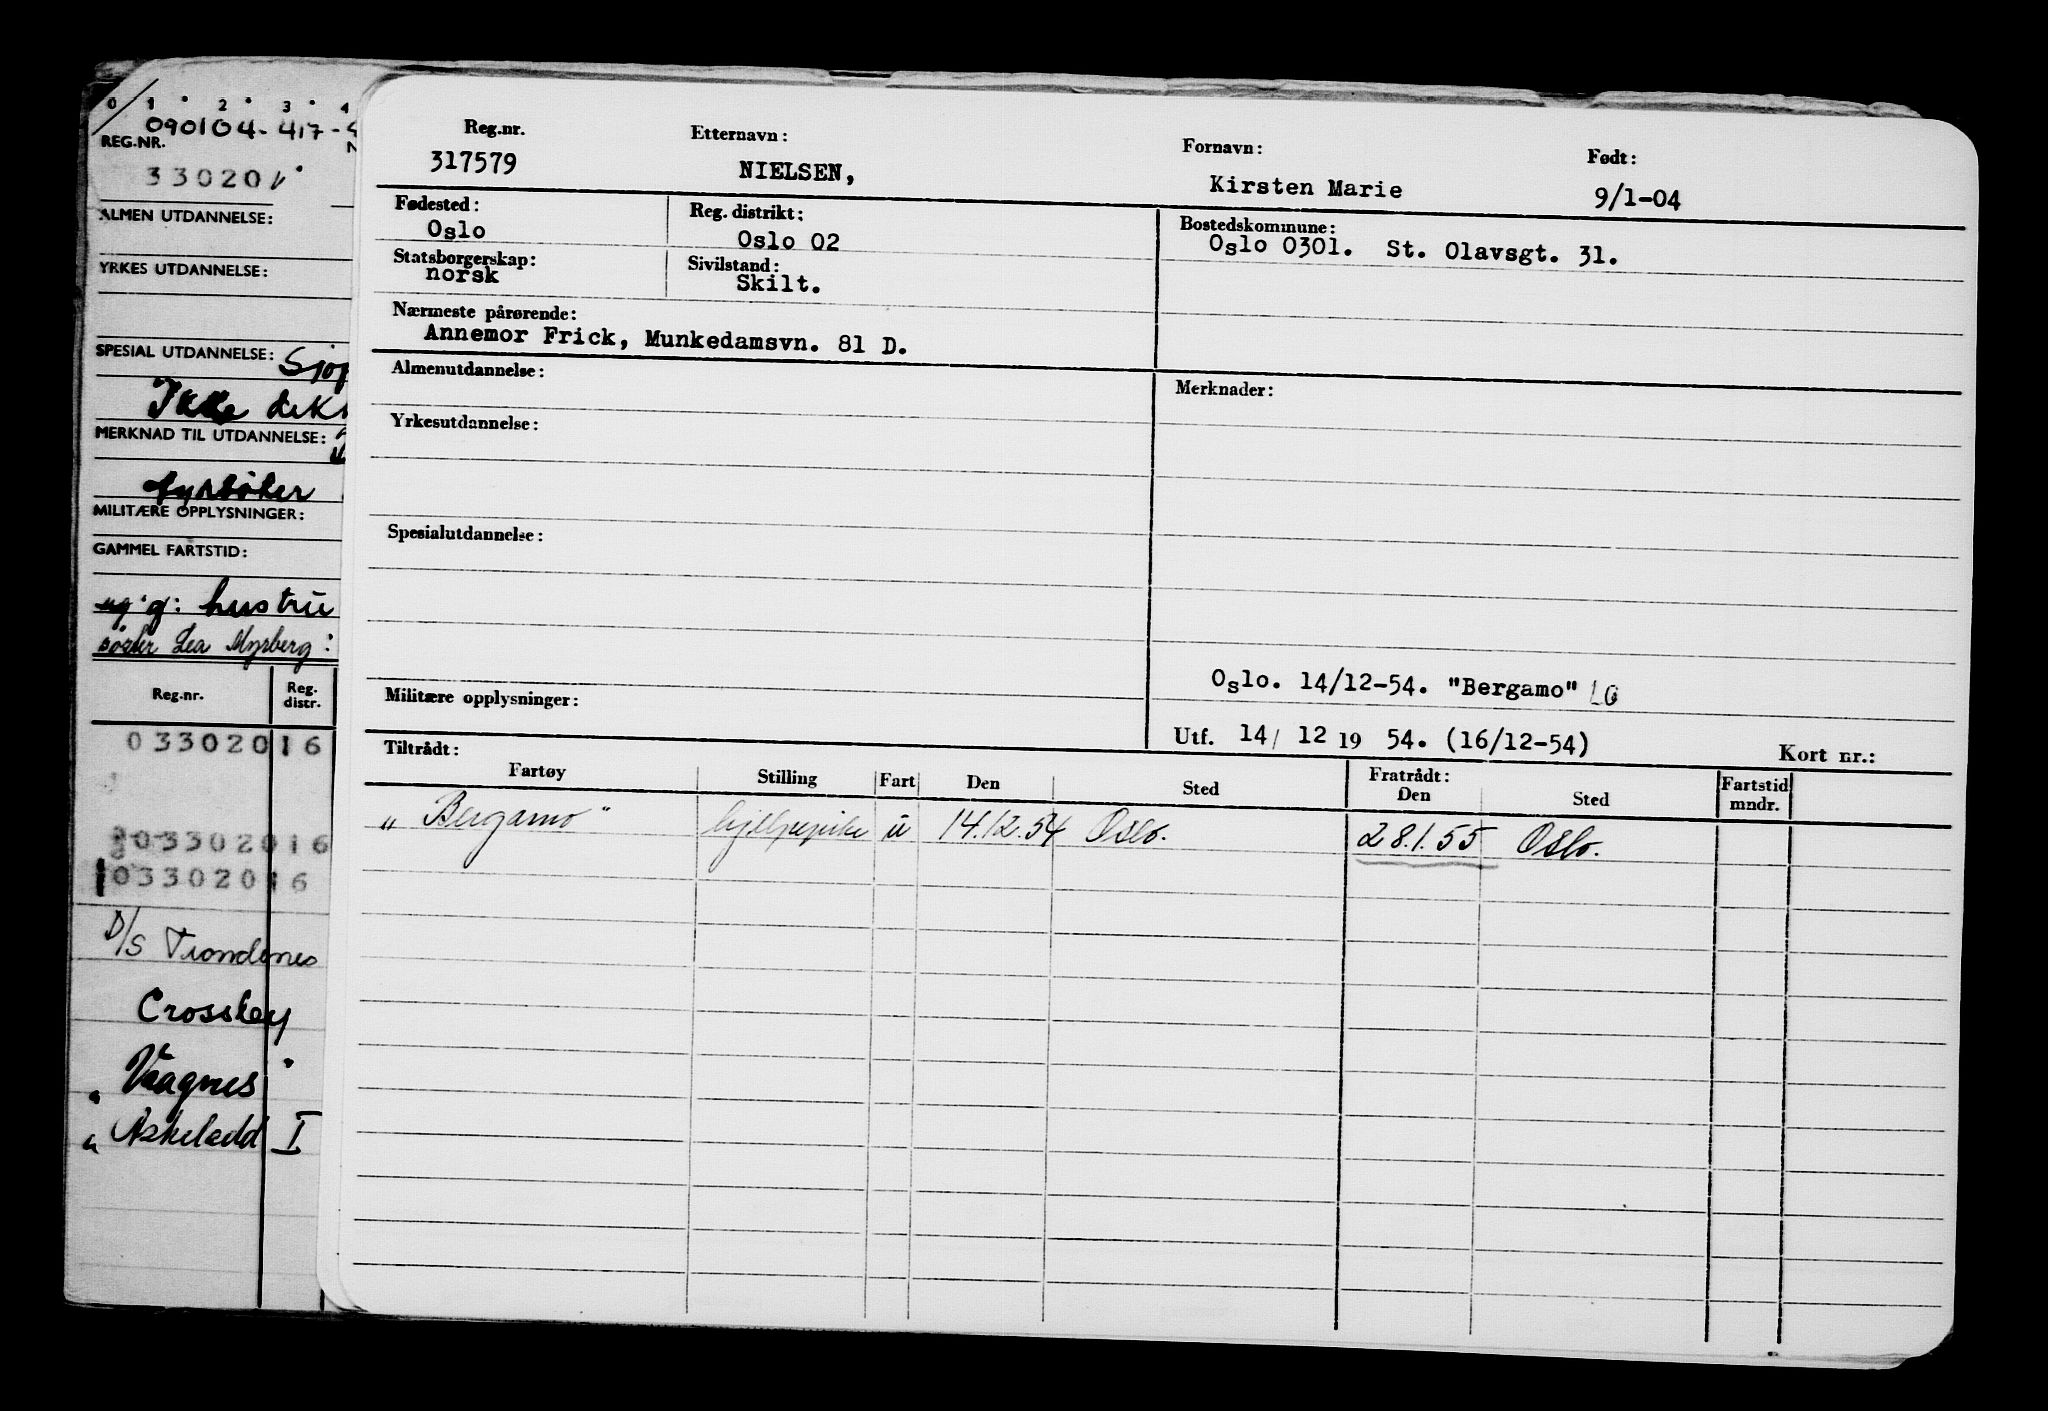 0 1 2 3 4
090104-417-
REG.NR.
33020
ALMEN UTDANNELSE:
YRKES UTDANNELSE:
SPESIAL UTDANNELSE:
Ikke
MERKNAD TIL UTDANNELSE:
fyrbøter
MILITÆRE OPPLYSNINGER:
GAMMEL FARTSTID:
g: hustru
Lea Myrberg:
Reg.nr. Reg. distr.
03302016
03302016
03302016
D/S Trondenes
Crossbey
Vaagnes"
" Askeladd I
Reg.nr. Etternavn: Fornavn: Født:
317579 NIELSEN, Kirsten Marie 9/1-04
Fødested: Reg. distrikt: Bostedskommune:
Oslo Oslo 02 Oslo 0301. St. Olavsgt. 31.
Statsborgerskap: Sivilstand:
norsk Skilt.
Nærmeste pårørende:
Annemor Frick, Munkedamsvn. 81 D.
Almenutdannelse: Merknader:
Yrkesutdannelse:
Spesialutdannelse:
Oslo. 14/12-54. "Bergamo" LG
Militære opplysninger:
Utf. 14/ 12 19 54. (16/12-54) Kort nr.:
Tiltrådt: Fratrådt:
Fartøy Stilling Fart Den Sted Den Sted Fartstid mndr.
"Bergamo" hjelpepike u 14.12.54 Oslo. 28.1.55 Oslo.